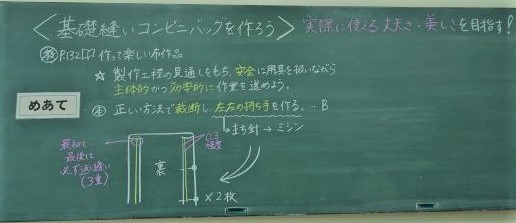 ＜基礎縫いコンビニバッグを作ろう＞ 実際に使える 丈夫さ・美しさを目指す!
教 P.132 作って楽しい布作品
☆ 製作工程の見通しをもち、安全に用具を扱いながら
主体的かつ効率的に作業を進めよう。
めあて
正しい方法で裁断し、左右の持ち手を作る。 - B
まち針 → ミシン
最初と
最後は
必ず返し縫い
(3重)
0.3
程度
裏
×2枚